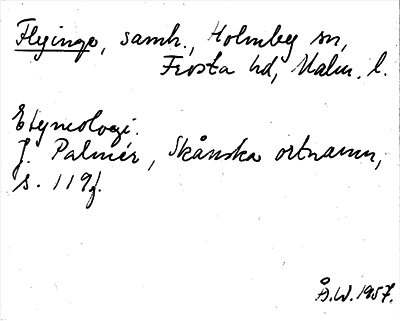 Flyinge, samh., Holmby sn,
Frosta hd, Malm. l.
Etymologi.
J. Palmér, Skånska ortnamn,
s. 119f.
Å.W. 1957.